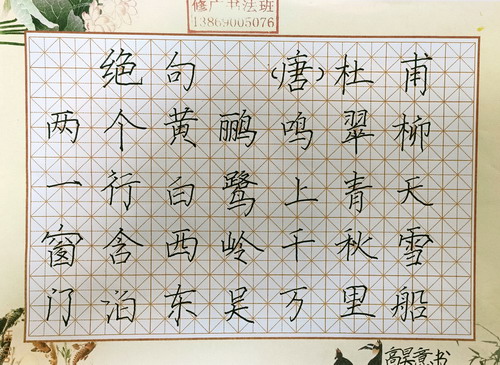 修广书法班
13869005076
绝句 (唐)杜甫
两个黄鹂鸣翠柳
一行白鹭上青天
窗含西岭千秋雪
门泊东吴万里船